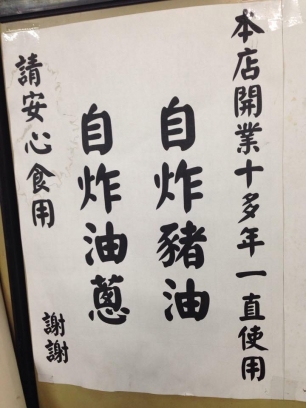 本店開業十多年一直使用
自炸豬油
自炸油蔥
請安心食用
謝謝